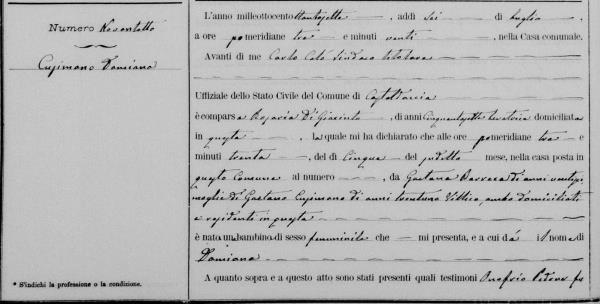 Numero Novantotto
Cusimano Damiana
* S'indichi la professione o la condizione.
L'anno milleottocento ottantasette, addì sei di Luglio,
a ore pomeridiane tre e minuti venti, nella Casa comunale.
Avanti di me Carlo Calì Sindaco
Uffiziale dello Stato Civile del Comune di Casteldaccia
è comparsa Rosaria Di Giacinto, di anni cinquantasette levatrice domiciliata
in questa, la quale mi ha dichiarato che alle ore pomeridiane tre e
minuti trenta, del dì cinque del suddetto mese, nella casa posta in
questo Comune al numero, da Gaetana
moglie di Gaetano Cusimano di anni trentuno Villico, ambo domiciliati
e residenti in questa
è nato un bambino di sesso femminile che mi presenta, e a cui dà il nome di
Damiana
A quanto sopra e a questo atto sono stati presenti quali testimoni Onofrio Pitarra fu